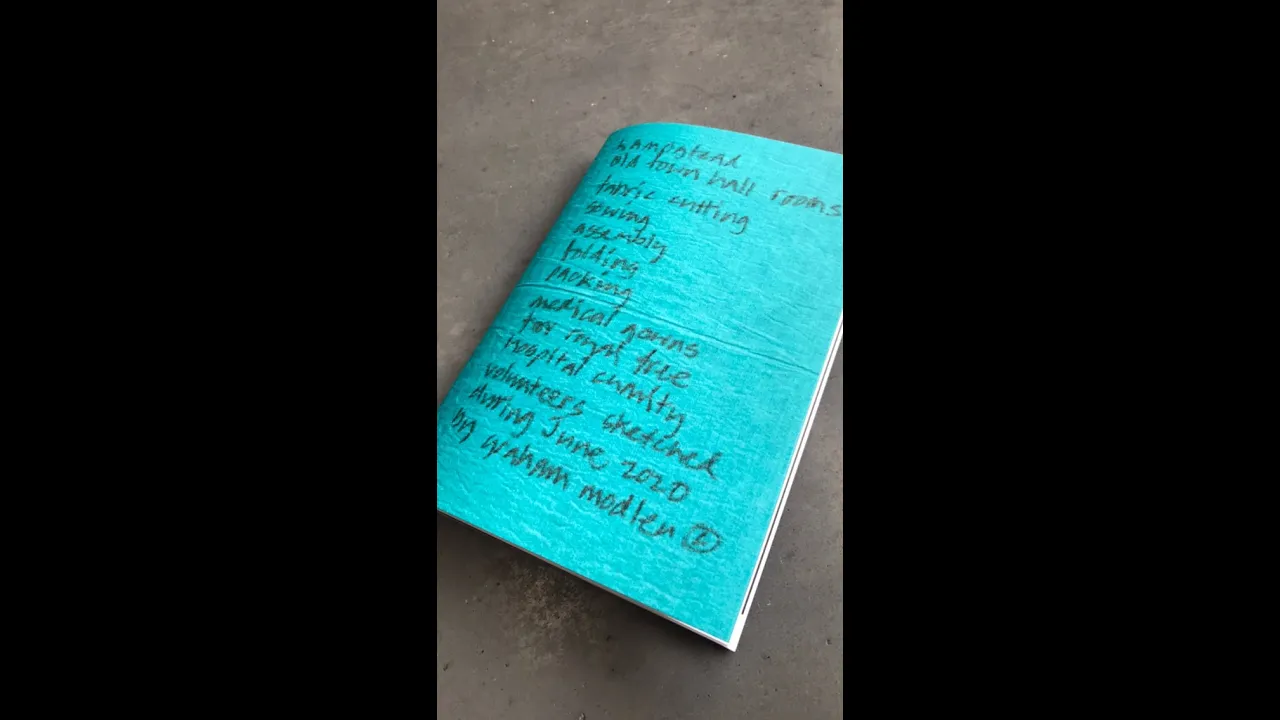 hampstead
old town hall rooms
fabric cutting
sewing
assembly
folding
packing
medical gowns
for royal free
hospital charity
volunteers sketched
during June 2020
by graham modlen ②